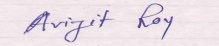 Avijit Roy